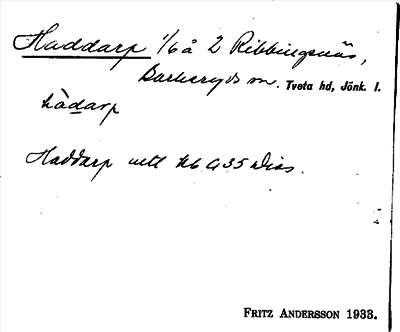 Haddarp 1/6 å 2 Ribbingsnäs,
Barkeryds sn. Tveta hd, Jönk. l.
hàdarp
Haddarp
FRITZ ANDERSSON 1933.